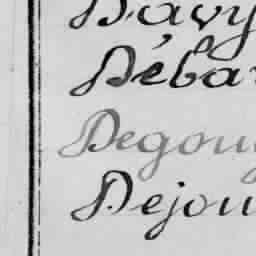 Davy
Déba
Degou
Dejou